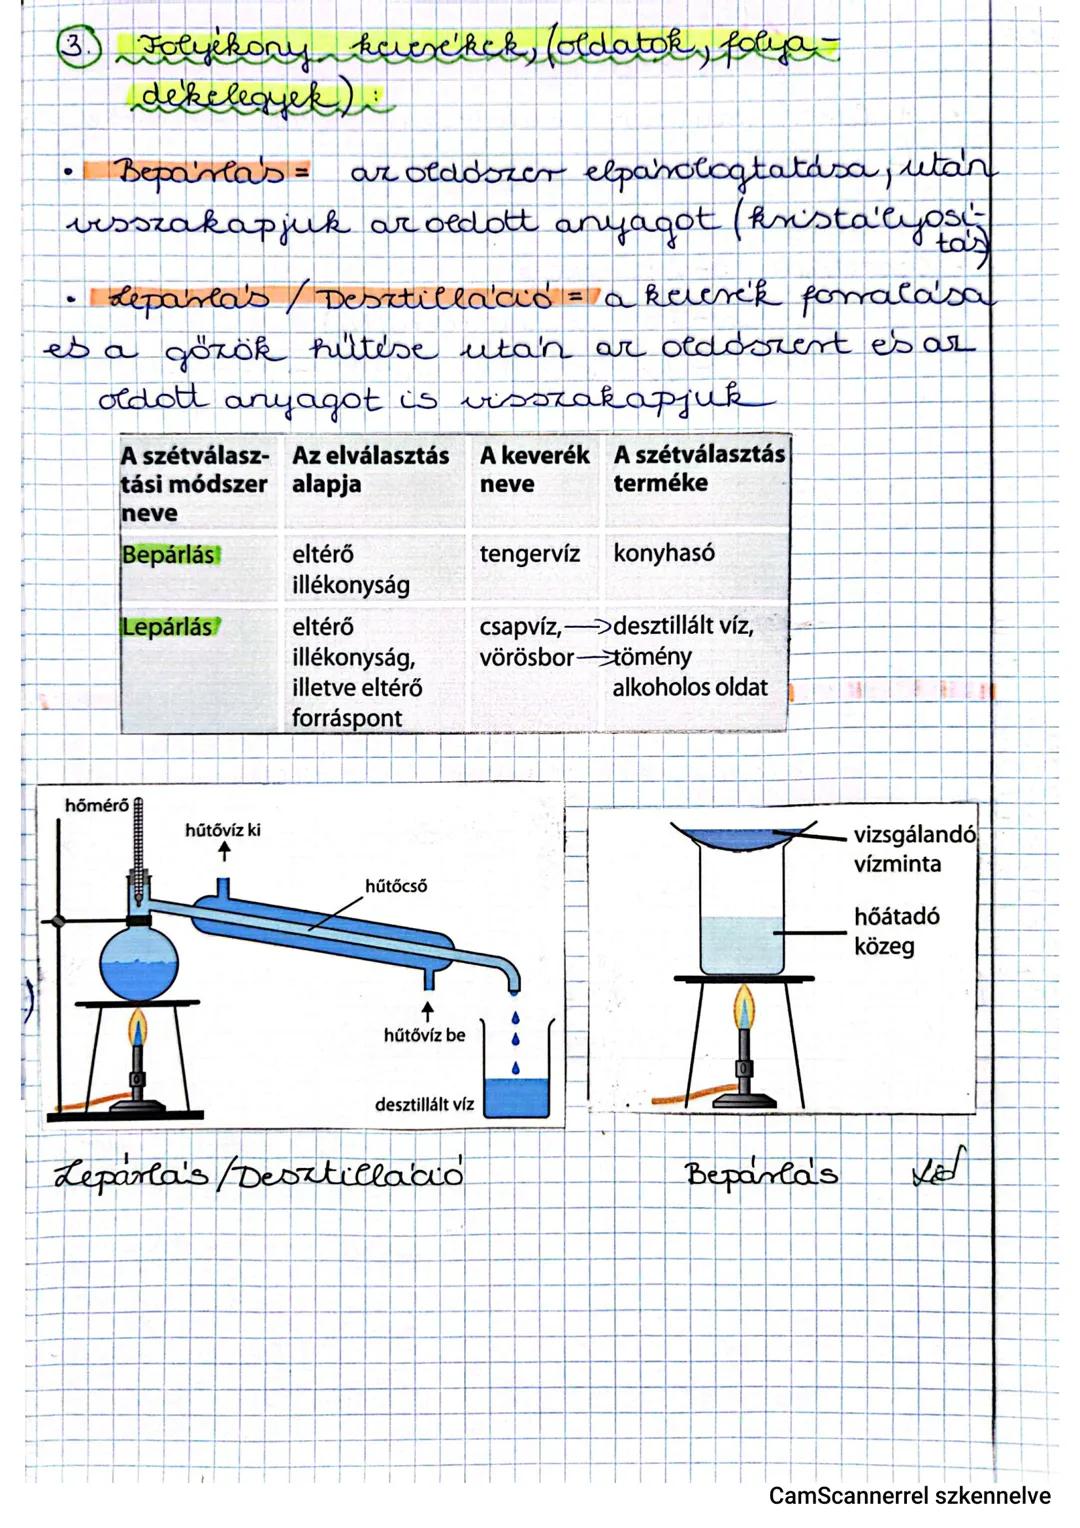 3. Folyékony keverékek, (oldatok, folya-
dékelegyek):
• Bepárlás = az oldószer elpárologtatása, után
visszakapjuk az oldott anyagot (kristályosí-
tás)
• Lepárlás / Desztilláció = a keverék forralása
és a gőzök hűtése után az oldószert és az
oldott anyagot is visszakapjuk
A szétválasz- Az elválasztás A keverék A szétválasztás
tási módszer alapja neve terméke
neve
Bepárlás eltérő tengervíz konyhasó
illékonyság
Lepárlás eltérő csapvíz, desztillált víz,
illékonyság, vörösbor tömény
illetve eltérő alkoholos oldat
forráspont
hőmérő
hűtővíz ki
hűtőcső
hűtővíz be
desztillált víz
vizsgálandó
vízminta
hőátadó
közeg
Lepárlás/Desztilláció Bepárlás
CamScannerrel szkennelve